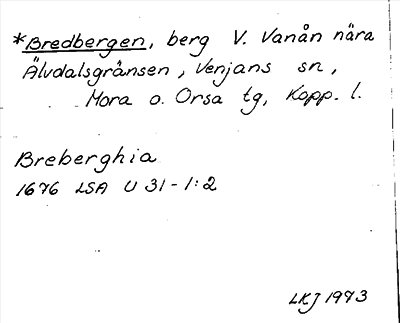 *Bredbergen, berg V. Vanån nära
Älvdalsgränsen, Venjans sn,
Mora o. Orsa tg, Kopp. l.
Breberghia
1676 LSA U 31-1:2
LKJ 1973